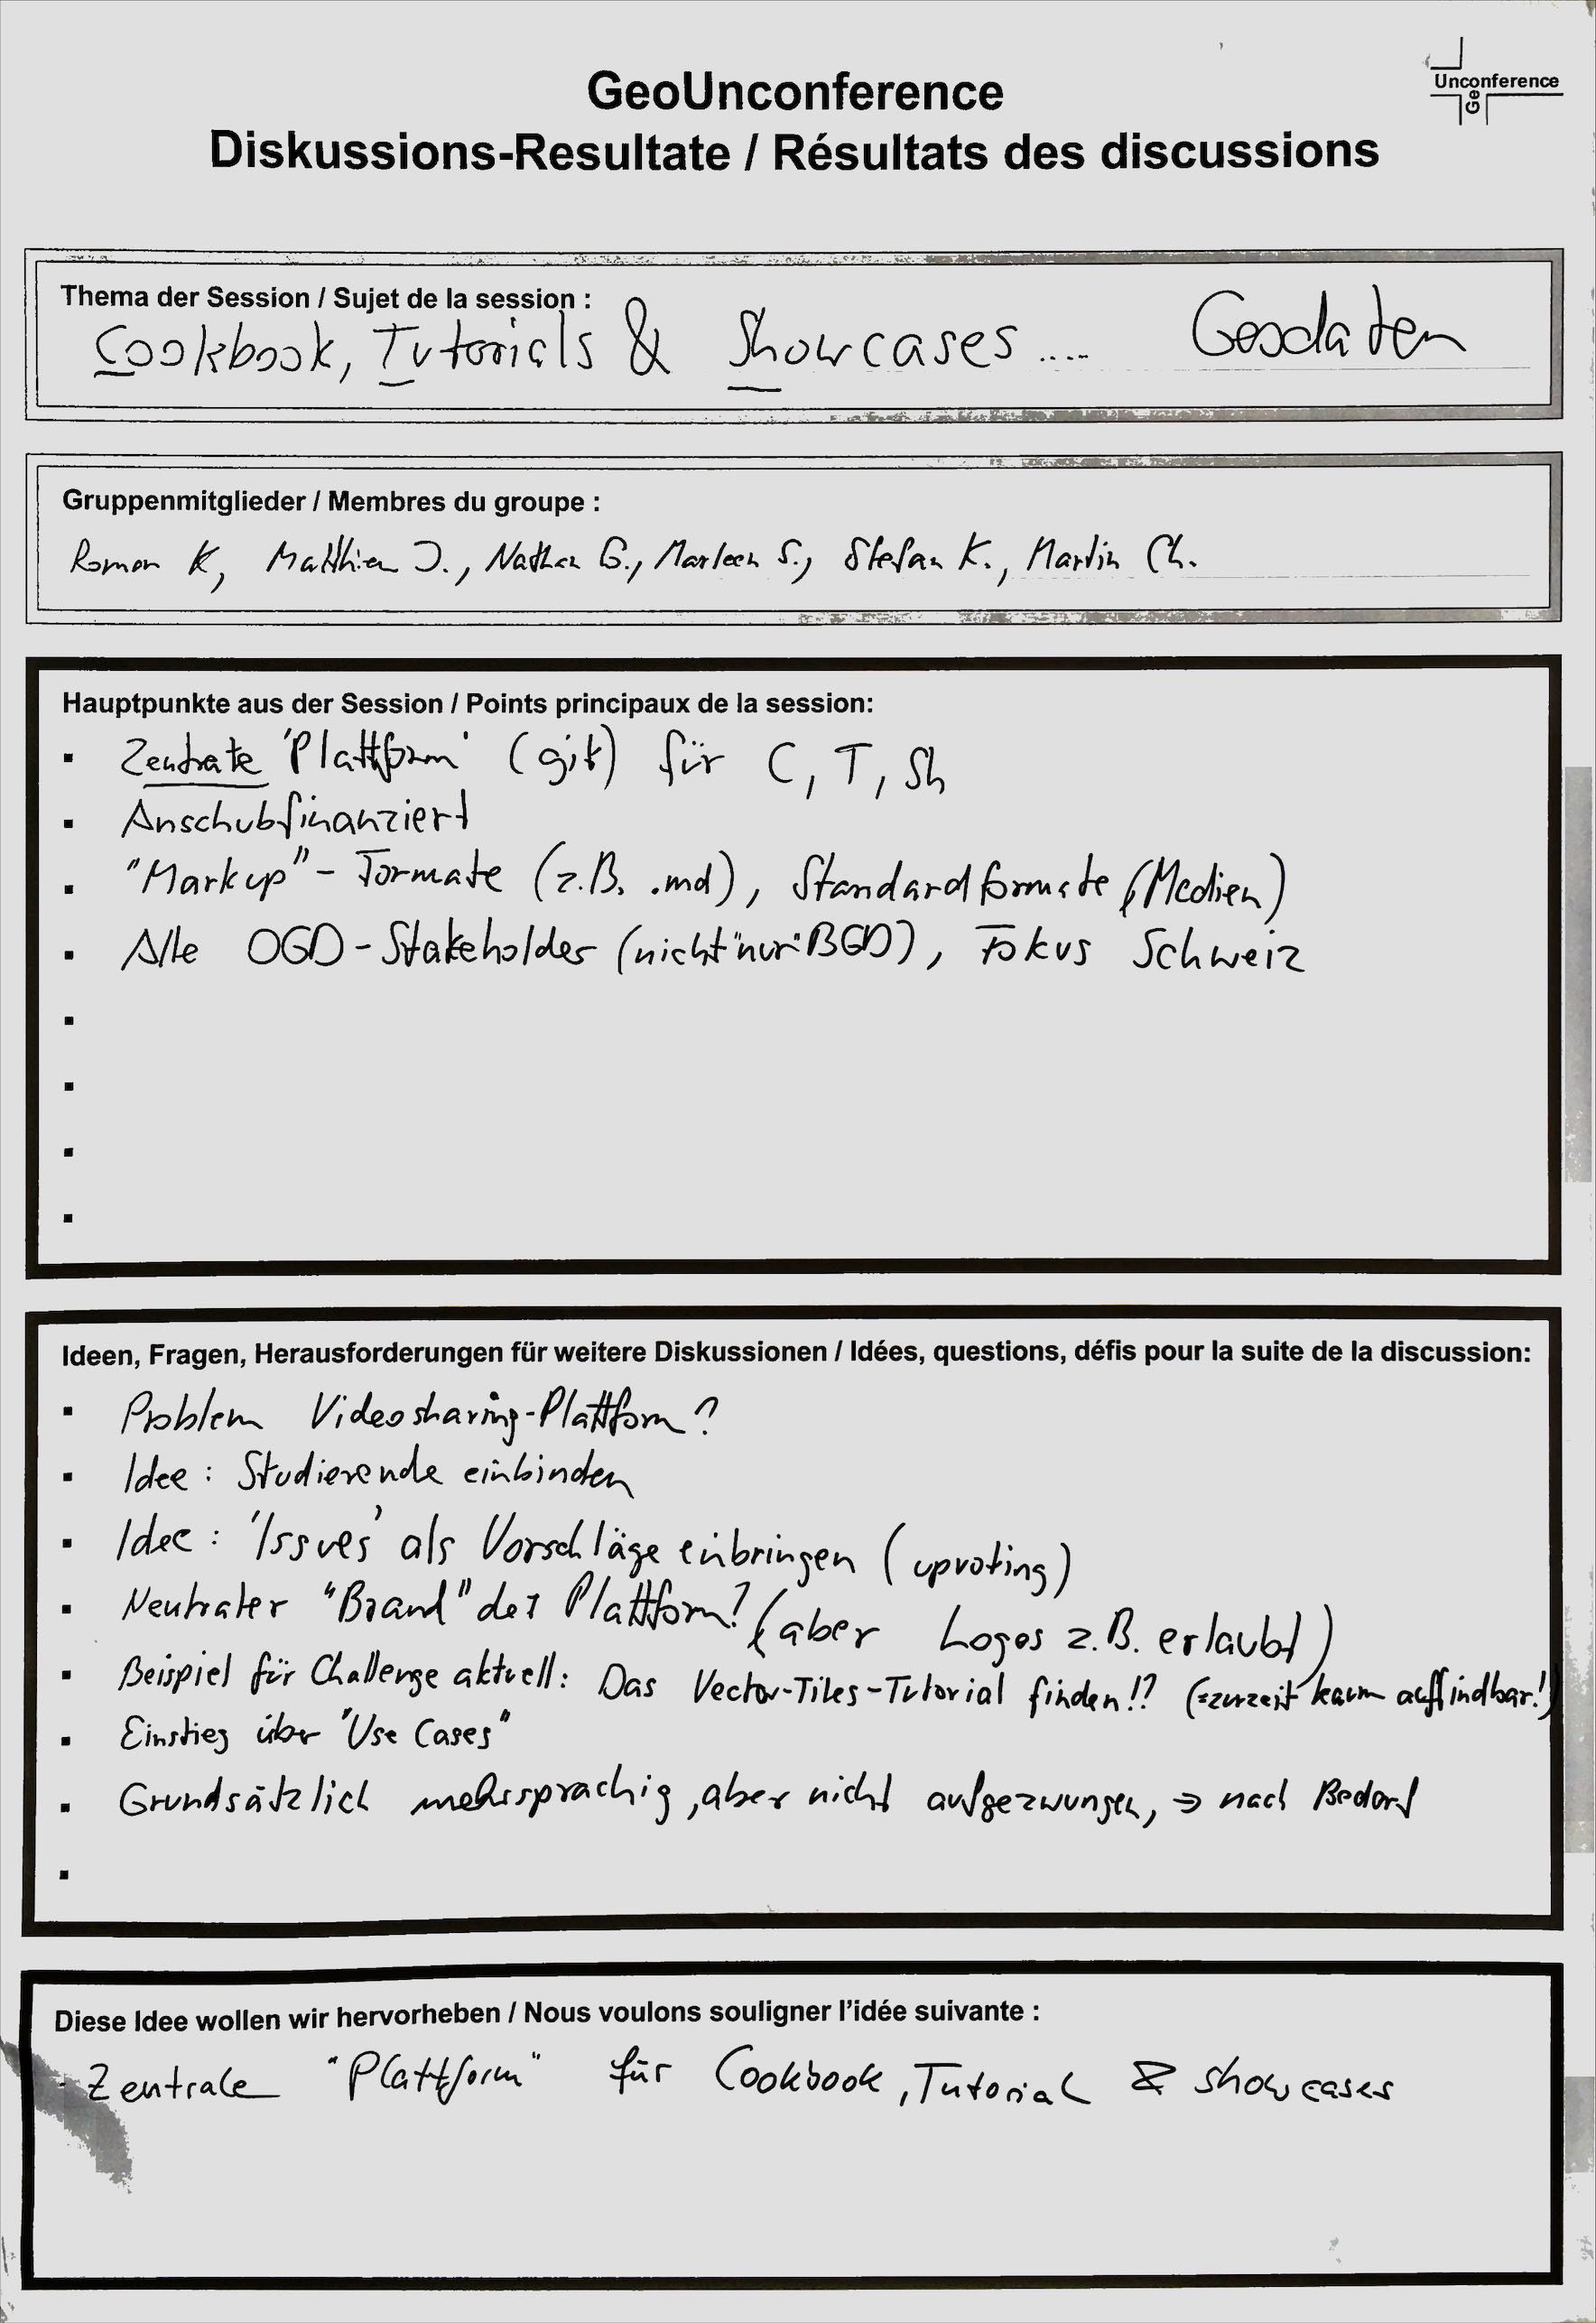 Unconference
Geo
GeoUnconference
Diskussions-Resultate / Résultats des discussions
Thema der Session / Sujet de la session :
Cookbook, Tutorials & Showcases .... Geodaten
Gruppenmitglieder / Membres du groupe :
Roman K, Matthieu J., Nathan G., Marleen S., Stefan K., Martin Ch.
Hauptpunkte aus der Session / Points principaux de la session:
▪ Zentrale 'Plattform' (git) für C, T, Sh
▪ Anschubfinanziert
▪ "Markup"- Formate (z.B. .md), Standardformate (Medien)
▪ Alle OGD-Stakeholder (nicht "nur" BGDI), Fokus Schweiz
▪
▪
▪
▪
Ideen, Fragen, Herausforderungen für weitere Diskussionen / Idées, questions, défis pour la suite de la discussion:
▪ Problem Videosharing-Plattform?
▪ Idee: Studierende einbinden
▪ Idee: 'Issues' als Vorschläge einbringen (upvoting)
▪ Neutraler "Brand" der Plattform! (aber Logos z.B. erlaubt)
▪ Beispiel für Challenge aktuell: Das Vector-Tiles-Tutorial finden!? (=zurzeit kaum auffindbar!)
▪ Einstieg über "Use Cases"
▪ Grundsätzlich mehrsprachig, aber nicht aufgezwungen, ⇒ nach Bedarf
▪
Diese Idee wollen wir hervorheben / Nous voulons souligner l'idée suivante :
- Zentrale "Plattform" für Cookbook, Tutorial & showcases